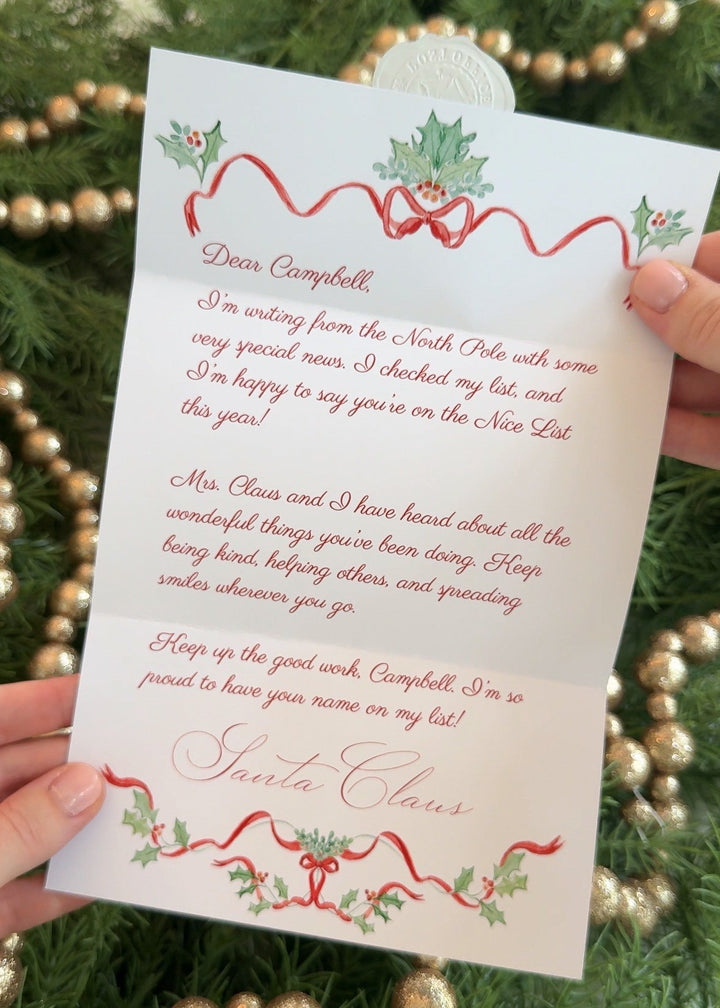 Dear Campbell,
I'm writing from the North Pole with some
very special news. I checked my list, and
I'm happy to say you're on the Nice List
this year!
Mrs. Claus and I have heard about all the
wonderful things you've been doing. Keep
being kind, helping others, and spreading
smiles wherever you go.
Keep up the good work, Campbell. I'm so
proud to have your name on my list!
Santa Claus